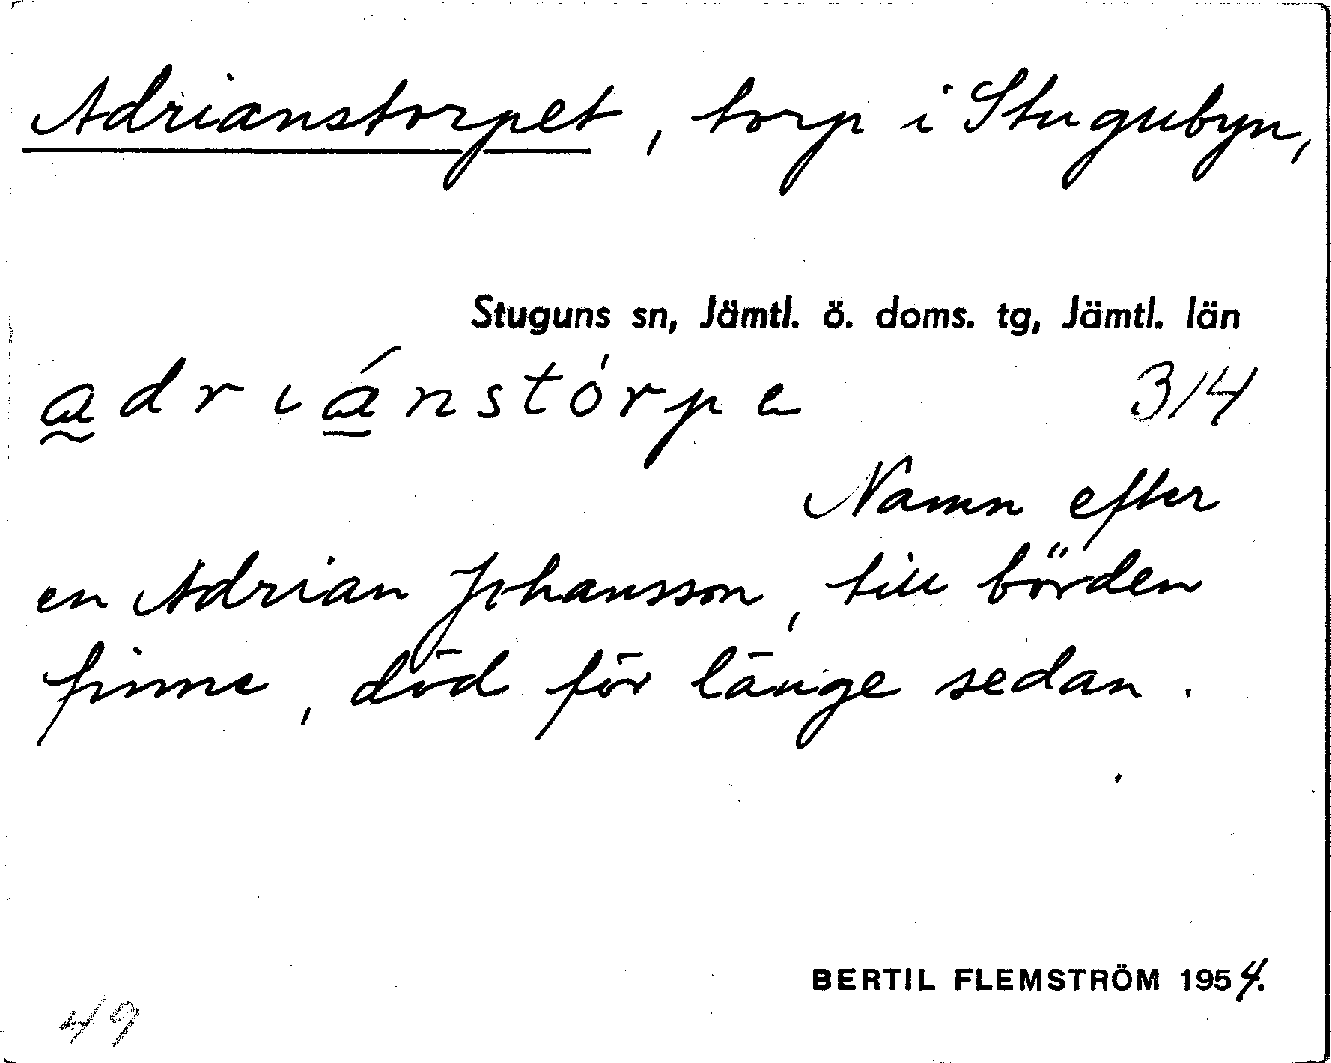 Adrianstorpet, torp i Stugubyn,
Stuguns sn, Jämtl. ö. doms. tg, Jämtl. län
adriánstórpe 314
Namn efter
en Adrian Johansson, till börden
finne, död för länge sedan.
BERTIL FLEMSTRÖM 1954.
49